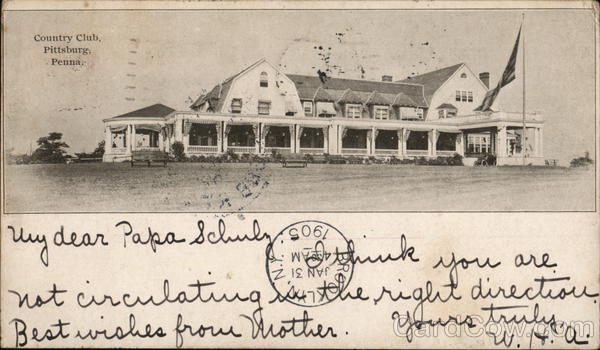 Country Club,
Pittsburg,
Penna.
My dear Papa Schulz:
I think you are
not circulating in the right direction
Best wishes from Mother. Yours truly,
W. H. A
BROOKLYN, N.Y.
JAN 31
4 30 AM
1905
CardCow.com